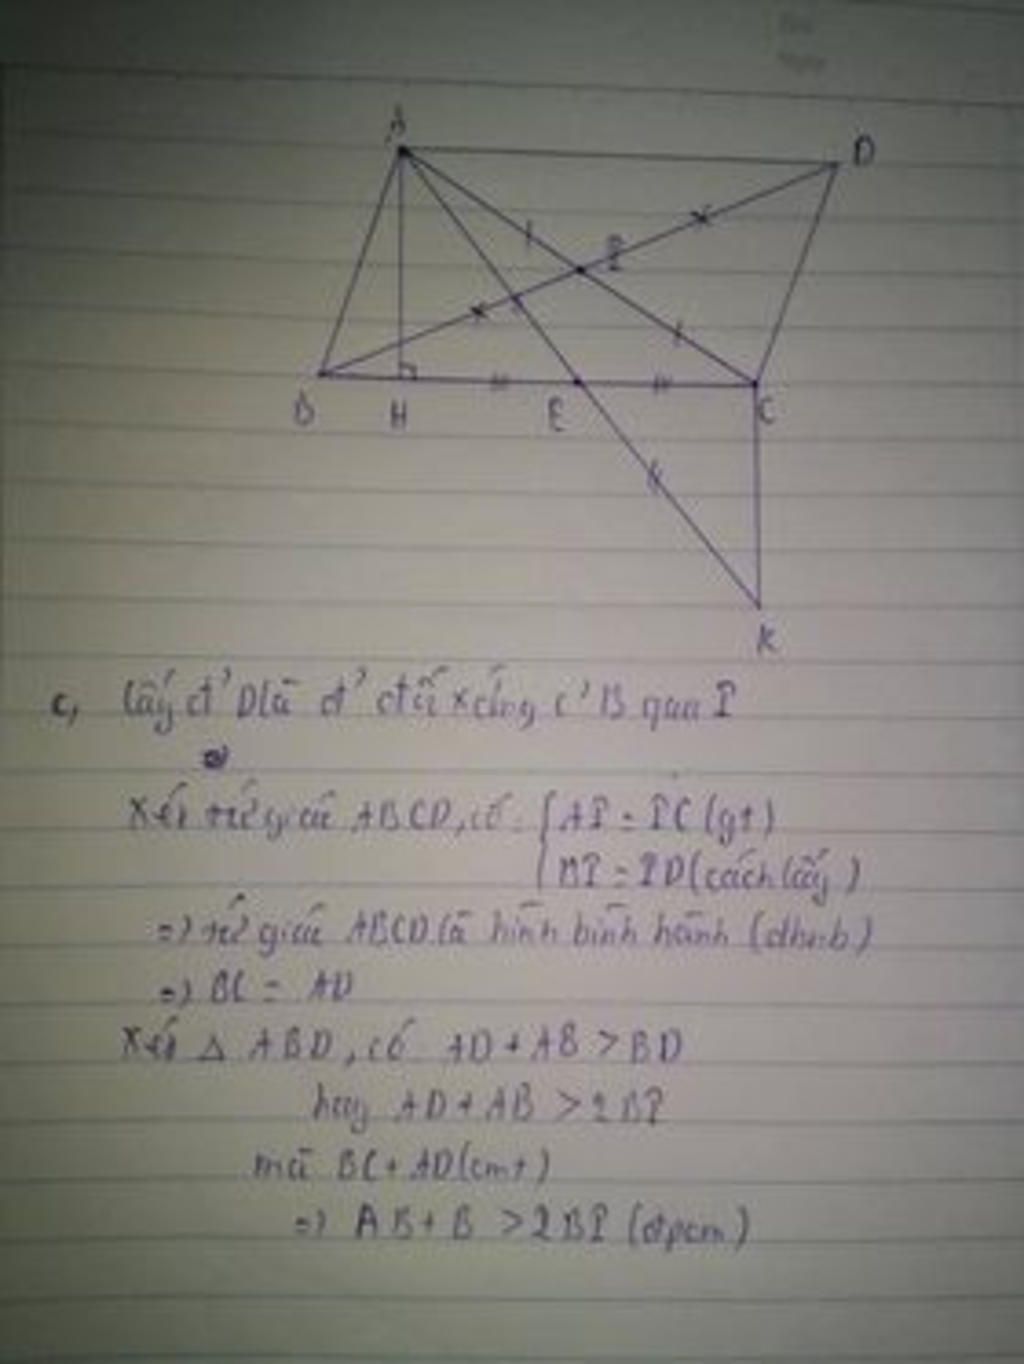 A
D
I
B H E C
K
c, lấy đ' D là đ' đối xứng c' B qua I
Xét tứ giác ABCD, có: AI = IC (gt)
BI = ID (cách lấy)
=> tứ giác ABCD là hình bình hành (dhnb)
=> BC = AD
Xét Δ ABD, có AD + AB > BD
hay AD + AB > 2BI
mà BC + AD (cmt)
=> AB + B > 2BI (đpcm)